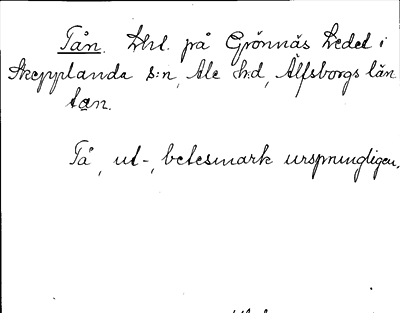 Tån. Lht. på Grönnäs Ledet i
Skepplanda s:n, Ale h:d, Älfsborgs län
tan.
Tå, ut-, betesmark ursprungligen.